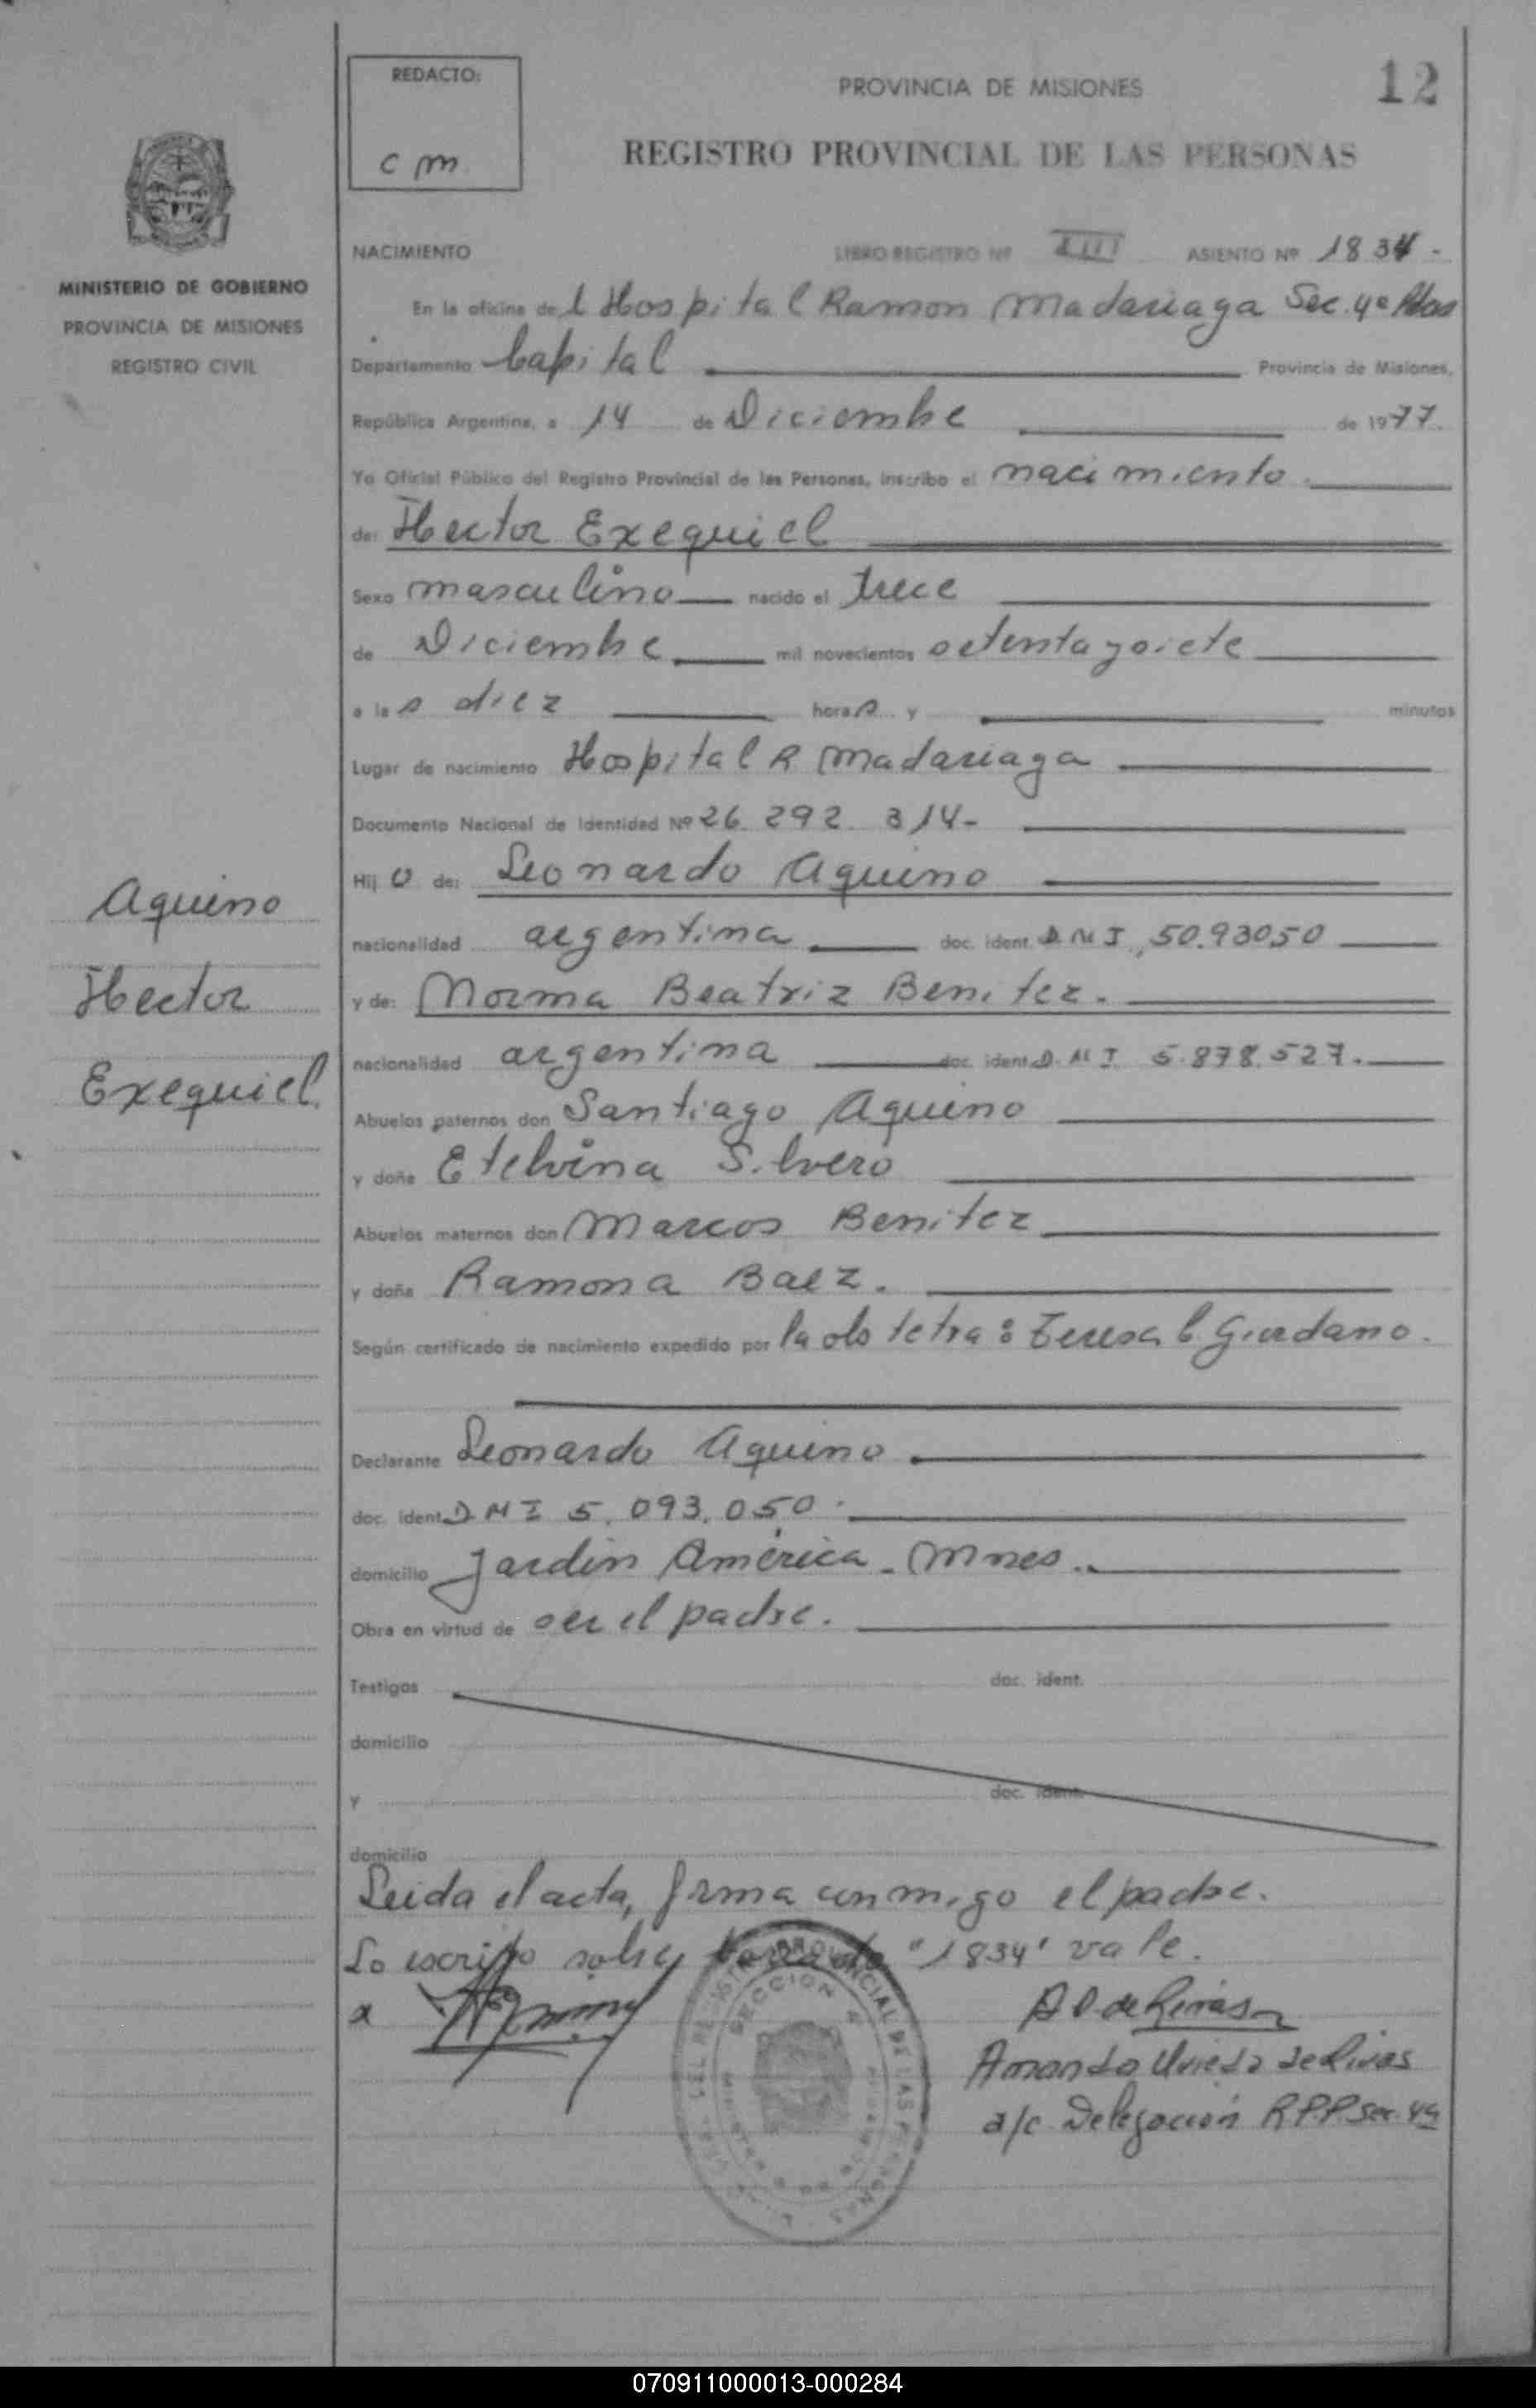 REDACTO:
c m
PROVINCIA DE MISIONES
12
REGISTRO PROVINCIAL DE LAS PERSONAS
MINISTERIO DE GOBIERNO
PROVINCIA DE MISIONES
REGISTRO CIVIL
NACIMIENTO LIBRO REGISTRO Nº XIII ASIENTO Nº 1834 -
En la oficina del Hospital Ramon Madariaga Sec. 4ª Pdas
Departamento Capital Provincia de Misiones,
República Argentina, a 14 de Diciembre de 1977.
Yo Oficial Público del Registro Provincial de las Personas, inscribo el nacimiento.
de: Hector Exequiel
Sexo masculino nacido el trece
de Diciembre mil novecientos setenta y siete
a las diez horas y minutos
Lugar de nacimiento Hospital R Madariaga
Documento Nacional de Identidad Nº 26.292.314-
Hijo de: Leonardo Aquino
nacionalidad argentina doc. ident. D.N.I. 50.93050
y de: Norma Beatriz Benitez.
nacionalidad argentina doc. ident. D.N.I. 5.878.527.
Abuelos paternos don Santiago Aquino
y doña Etelvina Silvero
Abuelos maternos don Marcos Benitez
y doña Ramona Baez.
Según certificado de nacimiento expedido por la obstetra: Teresa C. Giordano.
Declarante Leonardo Aquino
doc. ident. DNI 5.093.050.
domicilio Jardin América - Mnes.
Obra en virtud de ser el padre.
Testigos doc. ident.
domicilio
y doc. ident.
domicilio
Leida el acta, firma conmigo el padre.
Lo escrito sobre "1834" vale.
A O. de Rivas
Amanda Oviedo de Rivas
a/c Delegación R.P.P. Sec. 4ª
Aquino
Hector
Exequiel.
070911000013-000284